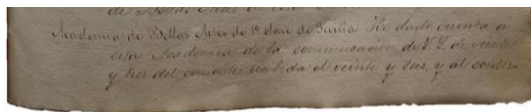 de Bellas Artes
Academia de Bellas Artes de 1ª clase de He dado cuenta á
esta Academia de la comunicacion de V. S. de veinte
y tres del corriente recibida el veinte y seis, y al contes-